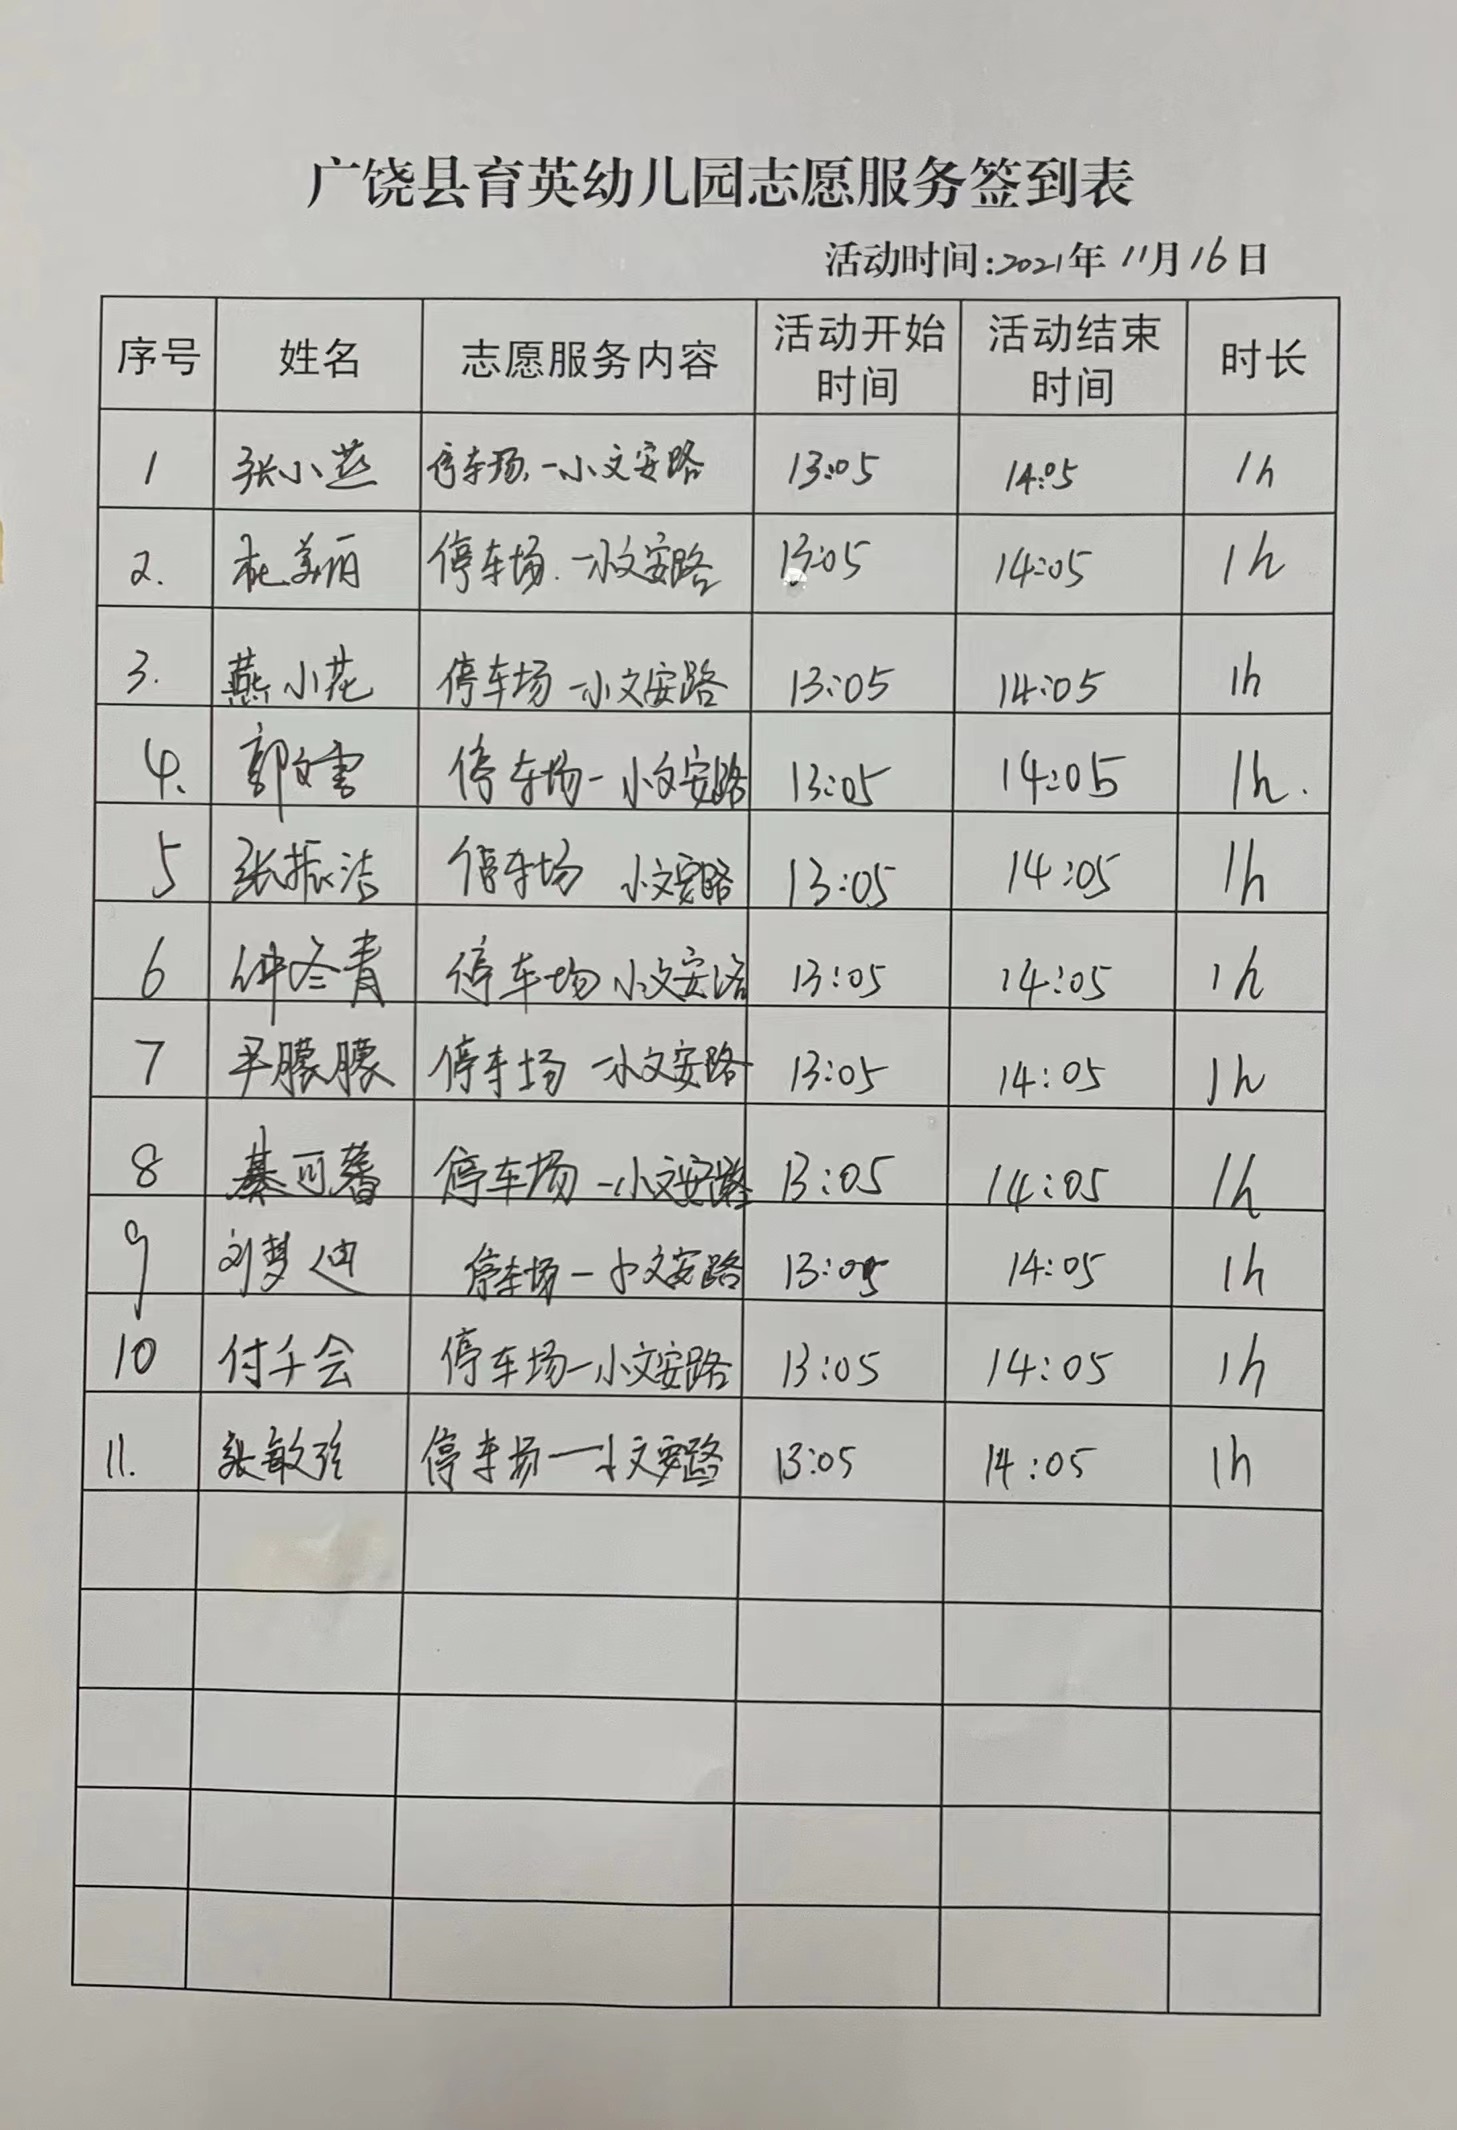 广饶县育英幼儿园志愿服务签到表
活动时间:2021年11月16日
序号 姓名 志愿服务内容 活动开始时间 活动结束时间 时长
1 张小燕 停车场.一小文安路 13:05 14:05 1h
2. 杜美丽 停车场.一小文安路 13:05 14:05 1h
3. 燕小花 停车场一小文安路 13:05 14:05 1h
4. 郭文雪 停车场-小文安路 13:05 14:05 1h.
5 张振洁 停车场 小文安路 13:05 14:05 1h
6 钟冬青 停车场 小文安路 13:05 14:05 1h
7 平朦朦 停车场 一小文安路 13:05 14:05 1h
8 綦可馨 停车场一小文安路 13:05 14:05 1h
9 刘梦迪 停车场一小文安路 13:05 14:05 1h
10 付千会 停车场一小文安路 13:05 14:05 1h
11. 张敏 停车场一小文安路 13:05 14:05 1h